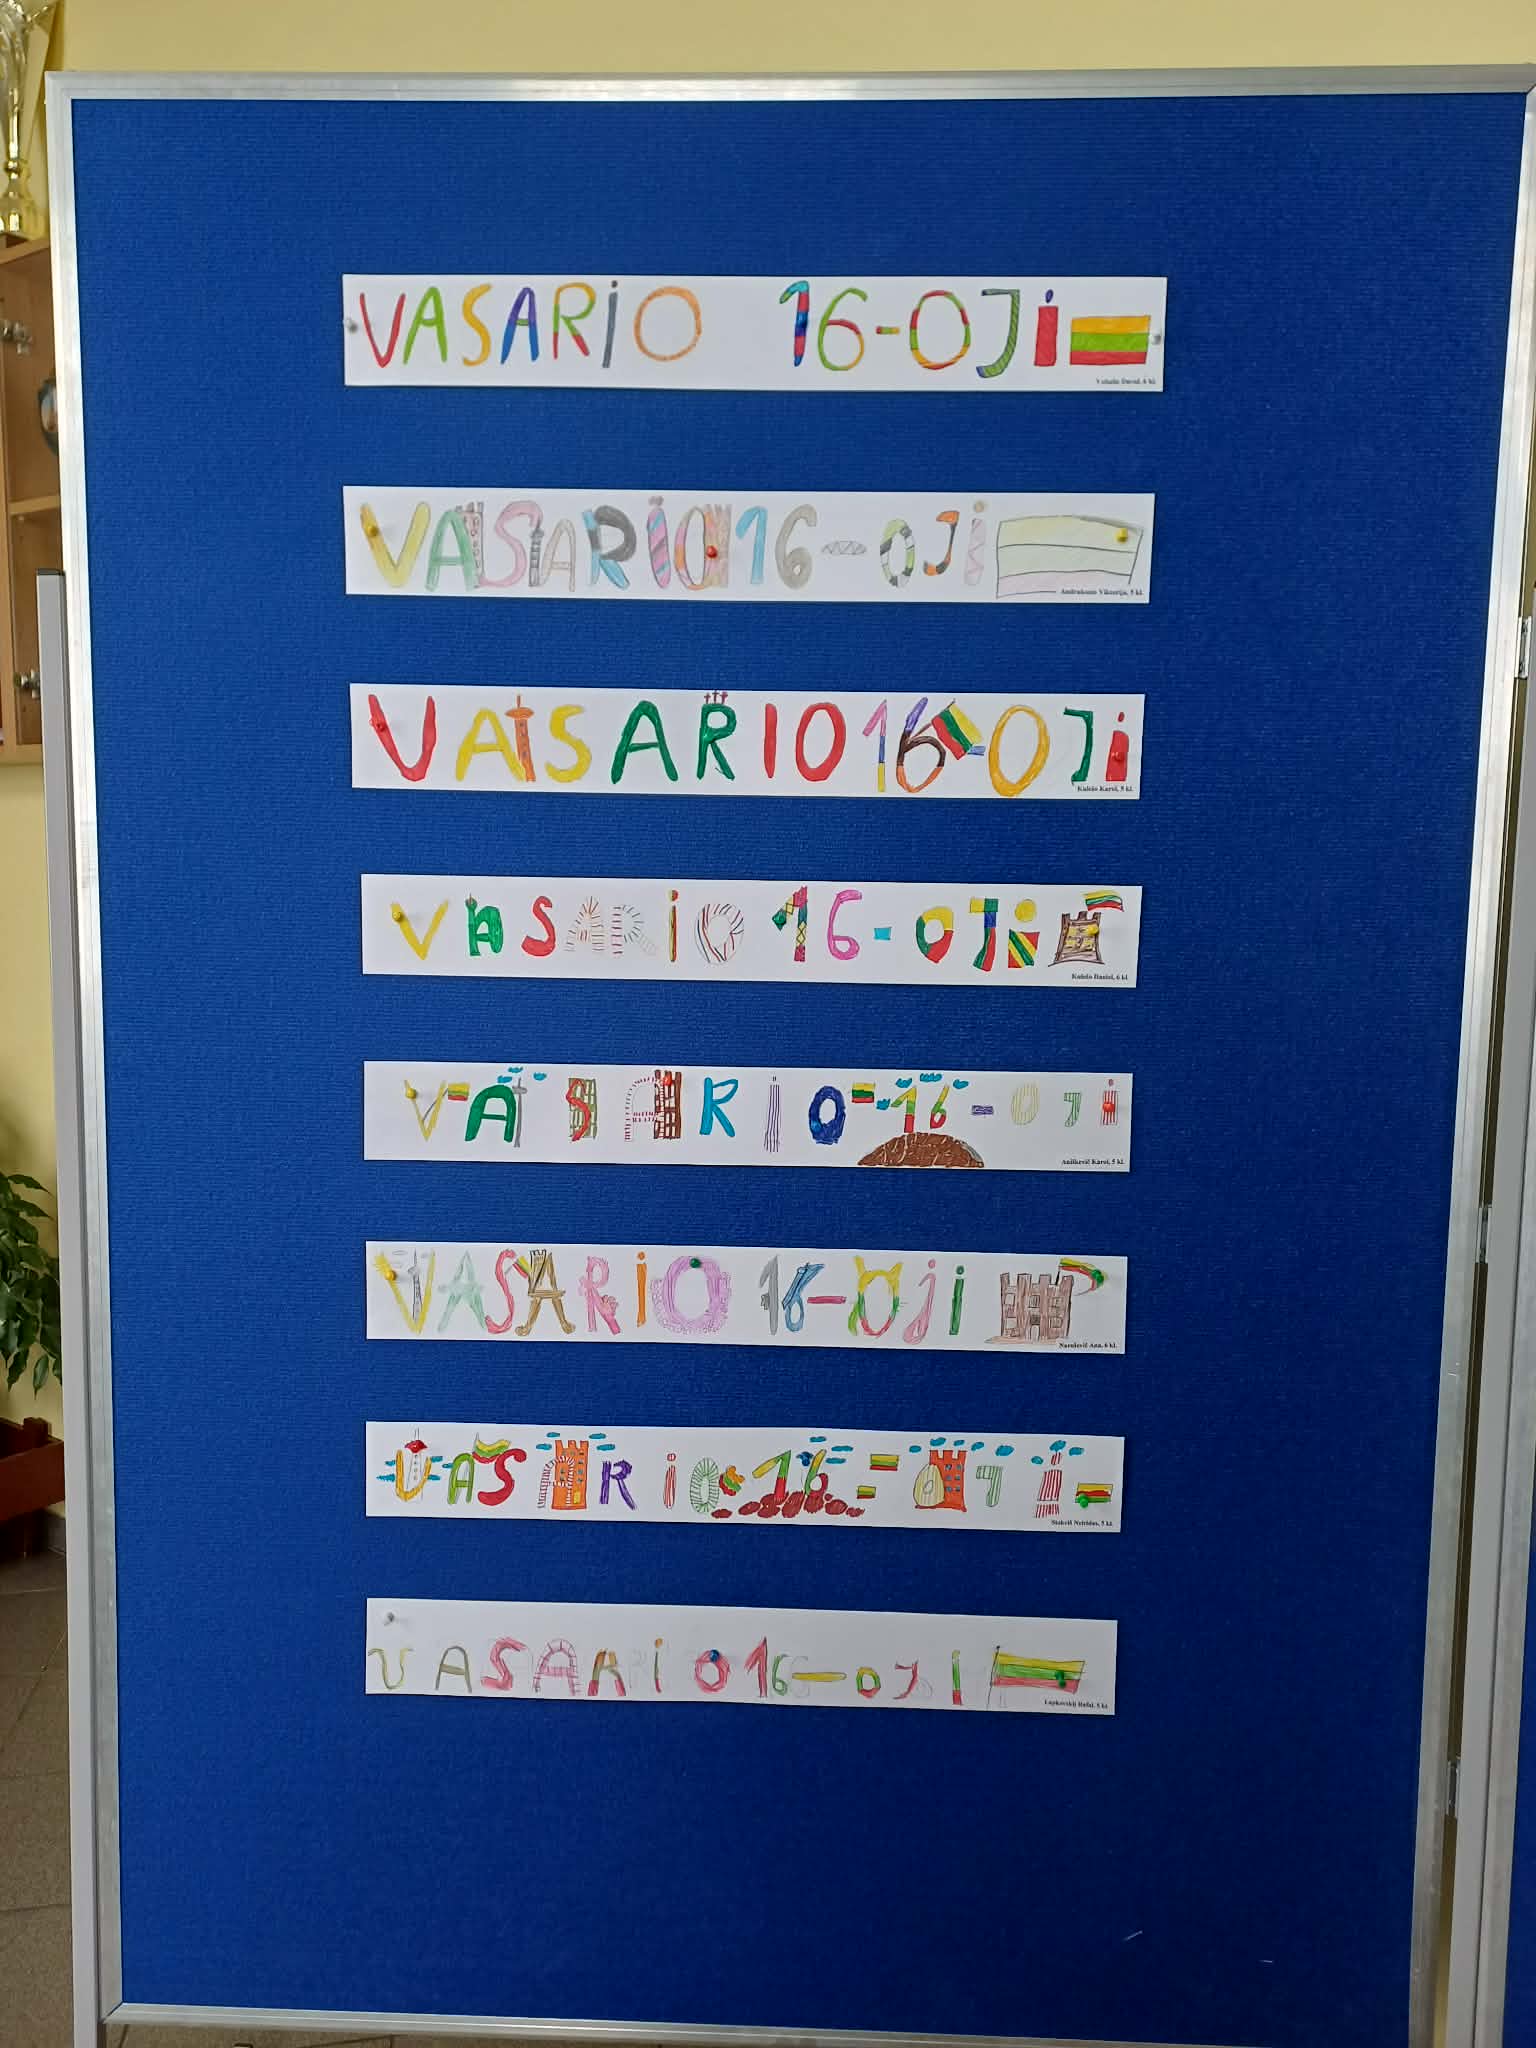 VASARIO 16-OJi
David, 6 kl.
VASARIO 16-OJi
Viktorija, 5 kl.
VASARIO 16-OJi
Karol, 5 kl.
VASARIO 16-OJi
Daniel, 6 kl.
VASARIO 16-OJi
Karol, 5 kl.
VASARIO 16-OJi
Ana, 6 kl.
VASARIO 16-OJi
5 kl.
VASARIO 16-OJi
Rafal, 5 kl.